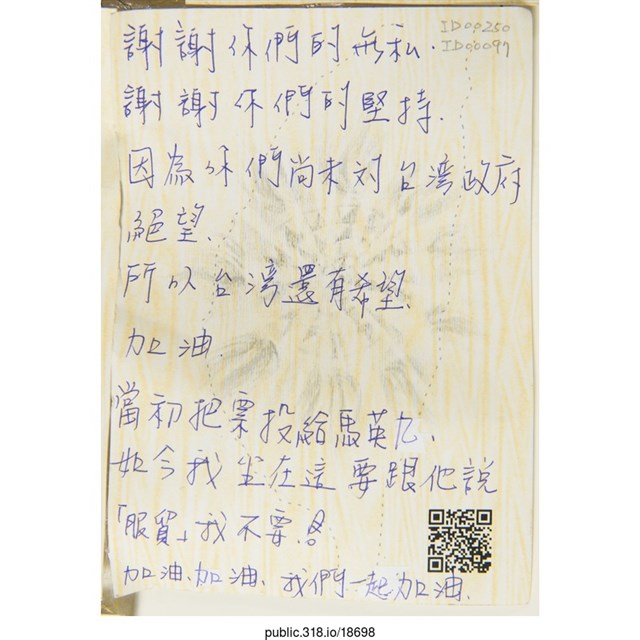 謝謝你們的無私.
ID00250
ID00097
謝謝你們的堅持.
因為你們尚未对台湾政府
絕望.
所以台湾還有希望.
加油.
當初把票投給馬英九.
如今我坐在這要跟他說
「服貿」我不要!
加油.加油.我們一起加油.
public.318.io/18698